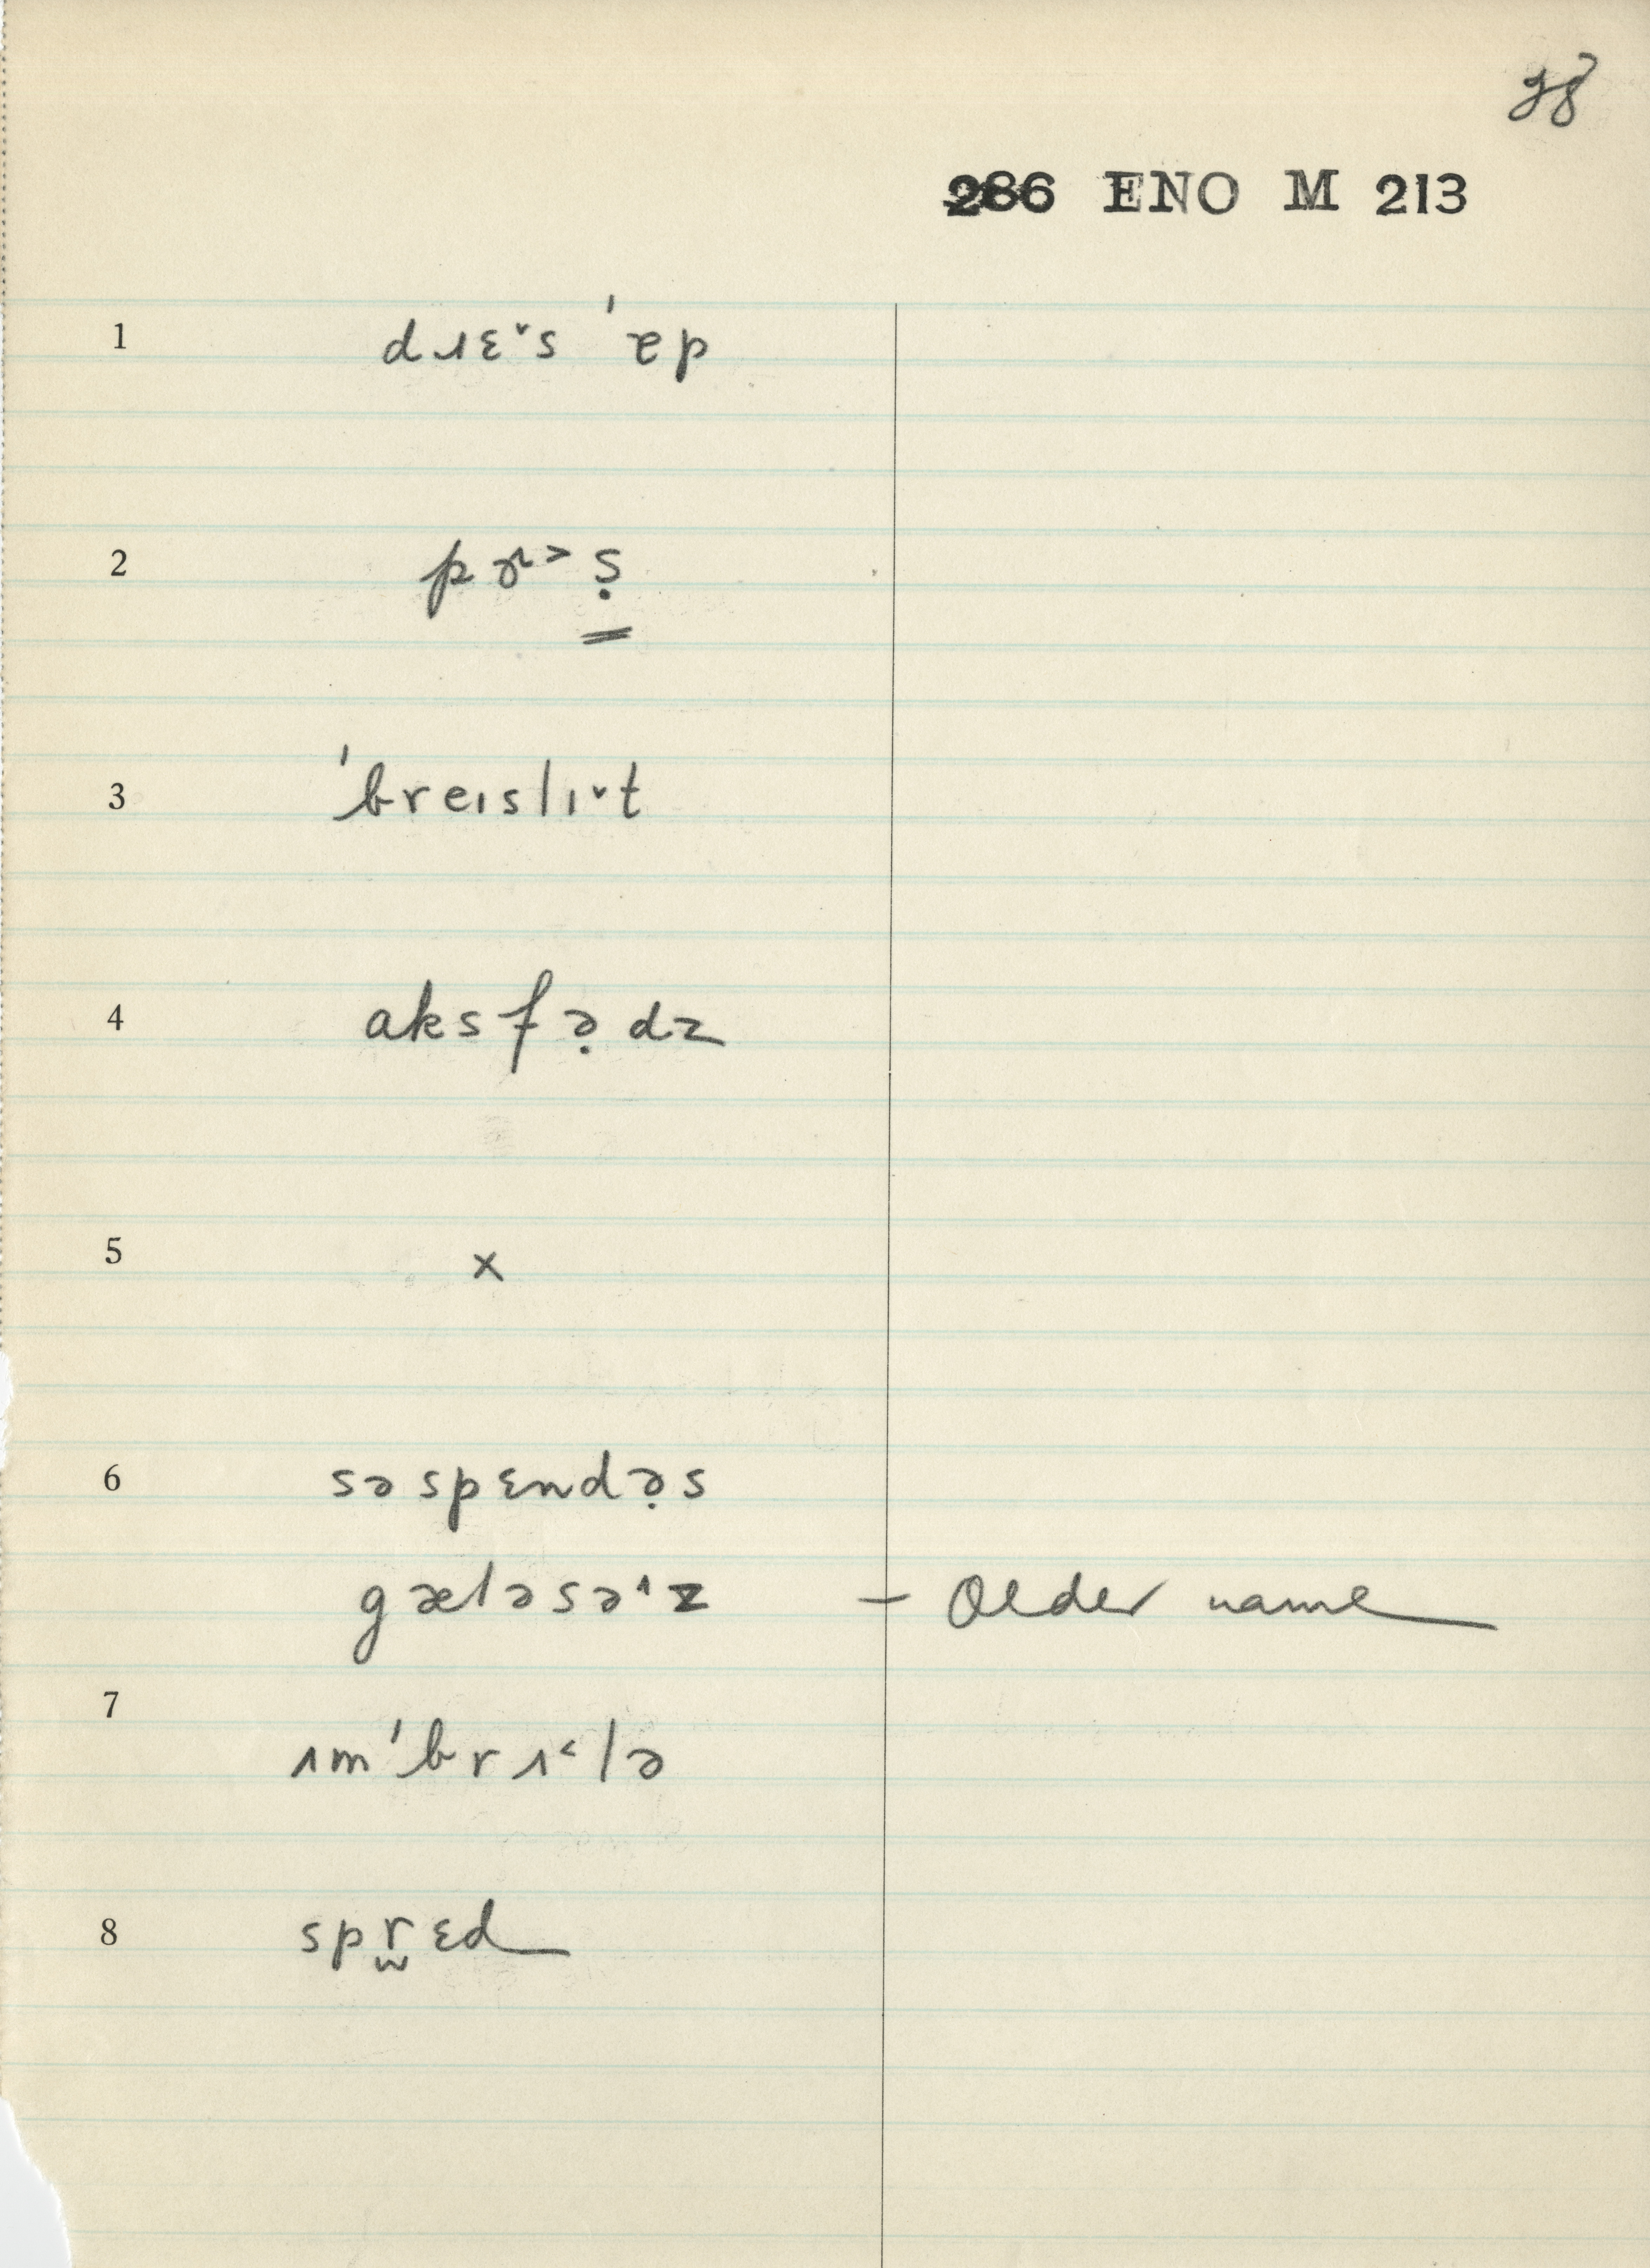 28
286 ENO M 213
1 dɹɛˇs ˈɐp
2 pɚ˃ ṣ
3 ˈbreɪslɪˇt
4 aksfə̣dz
5 x
6 səspɛndə̣s
gæləsə˄z – Older name
7 ɪmˈbrɪ˂lə
8 spr̫ɛd